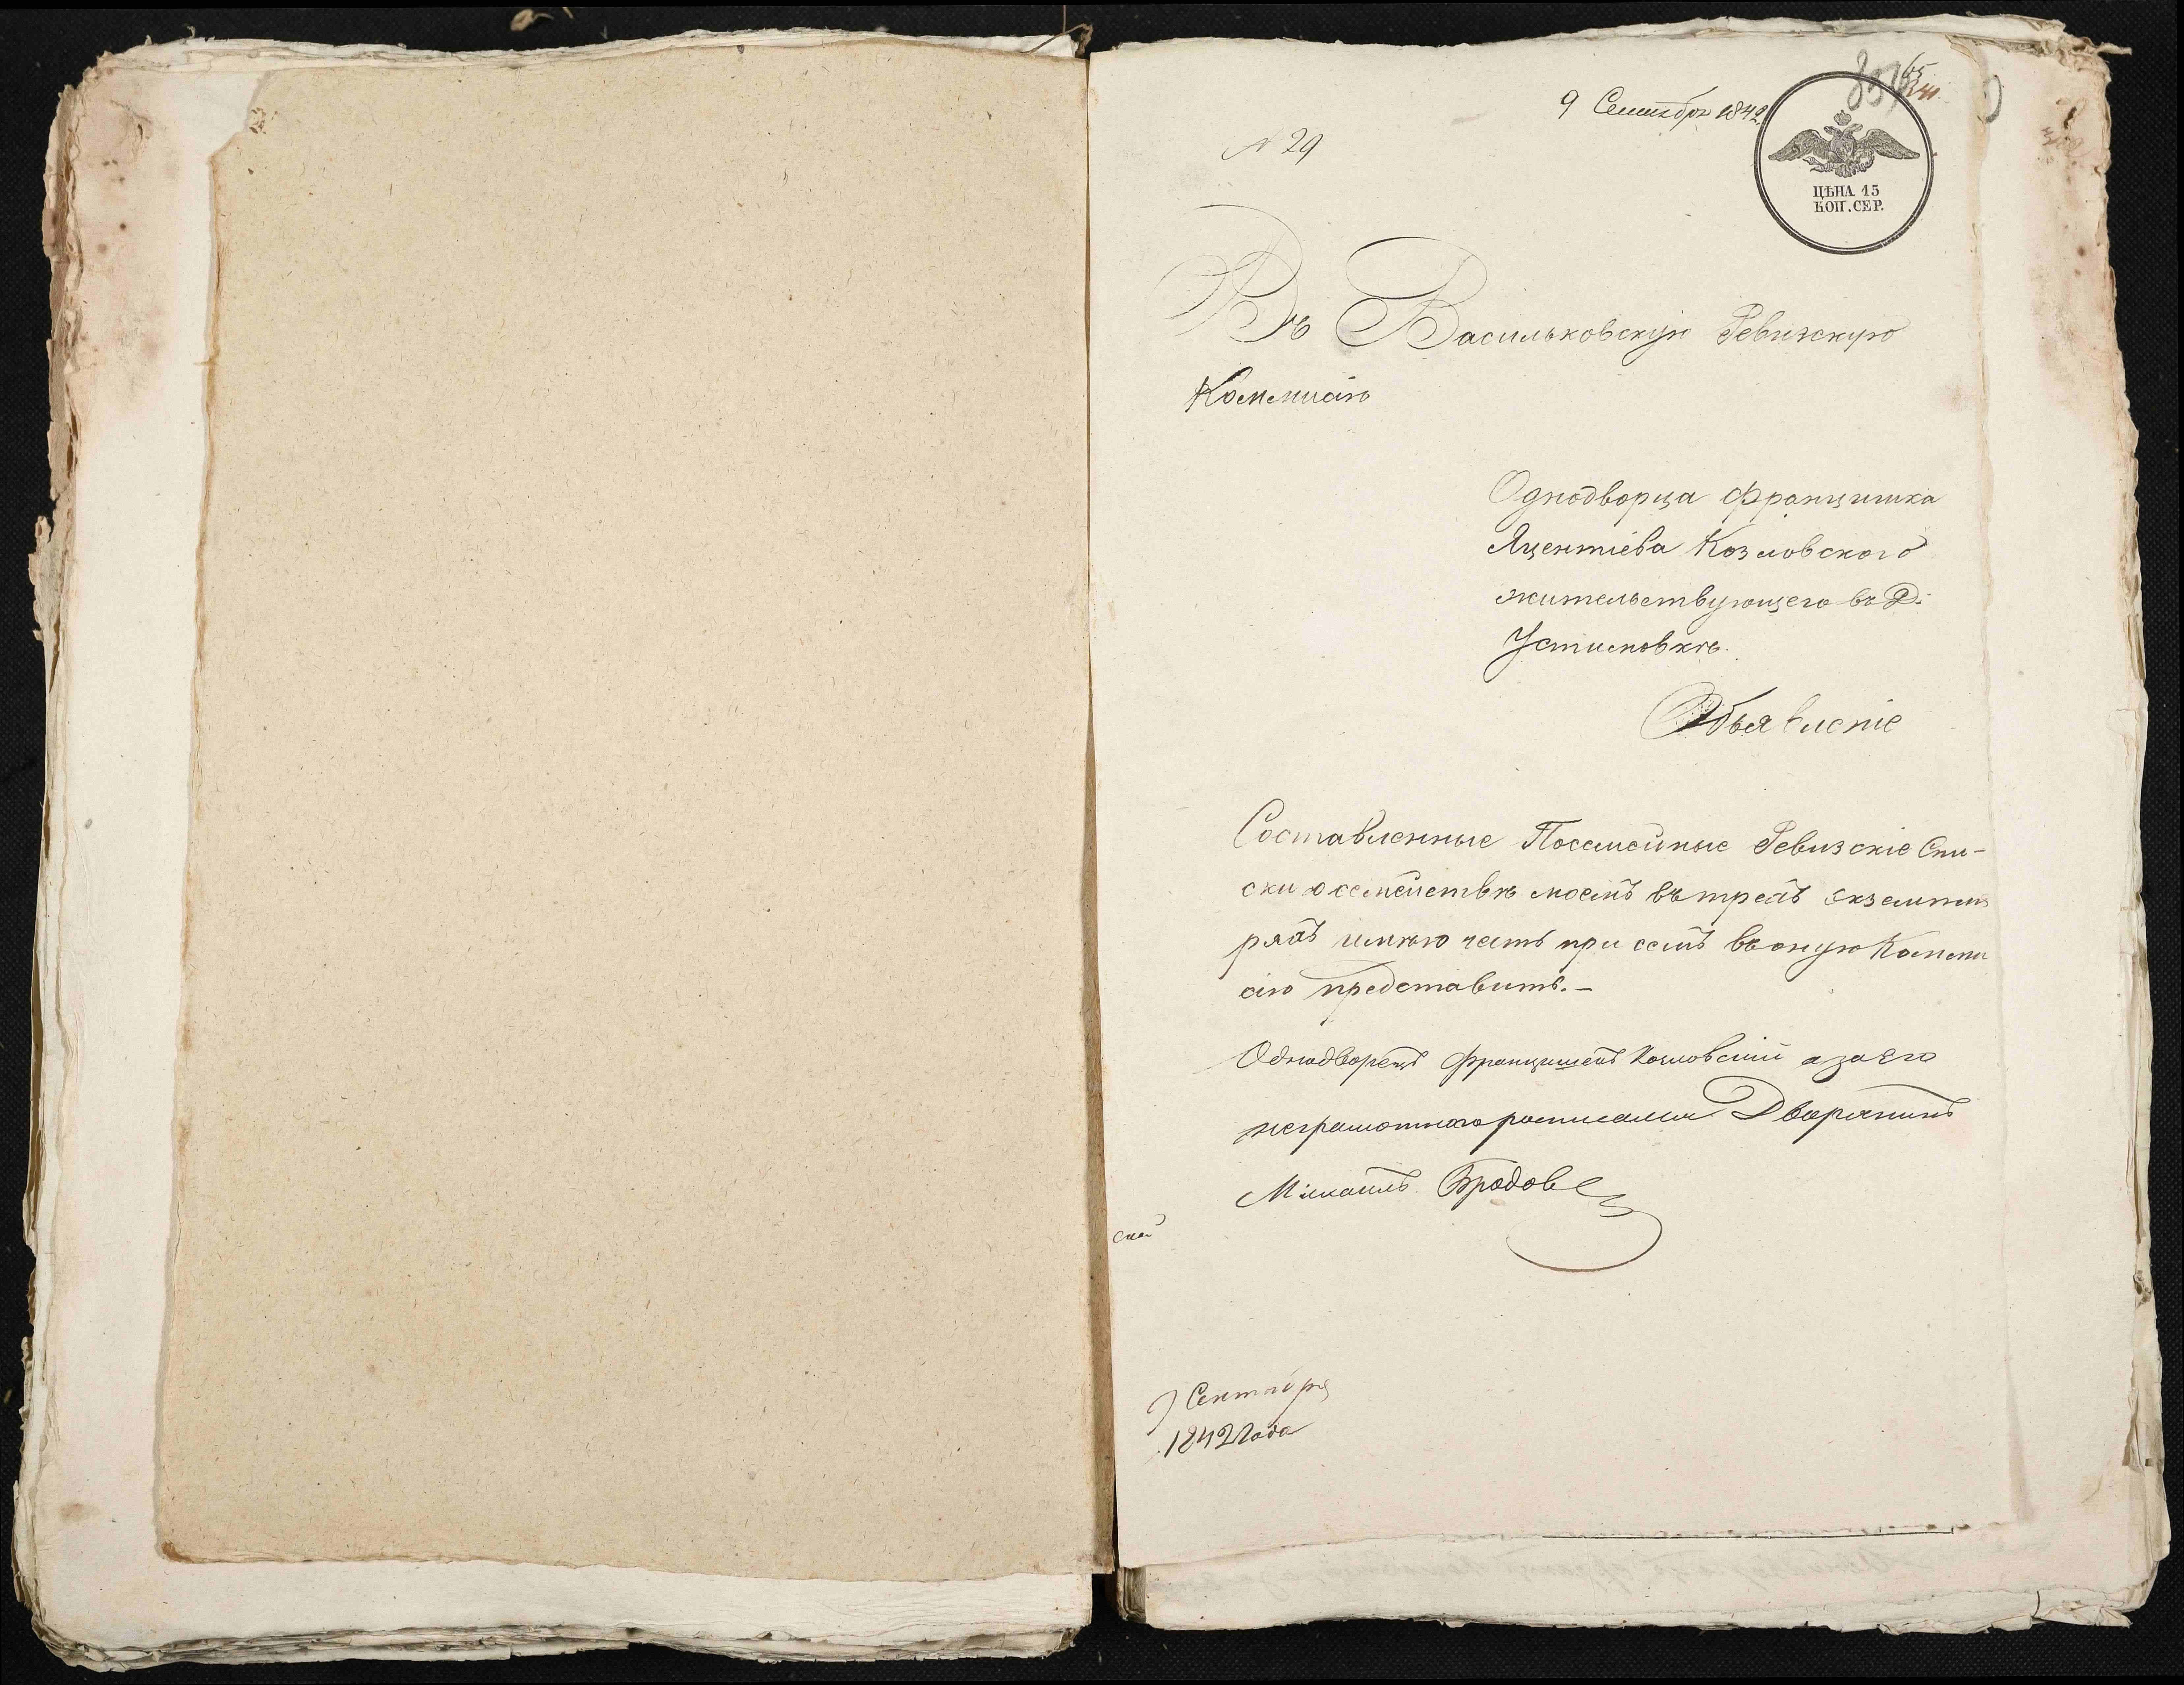 9 Сентября 1842.
N 29
ЦѢНА 15
КОП. СЕР.
Въ Васильковскую Ревизскую
Коммисію
Однодворца Францишка
Яцентіева Козловского
жительствующего въ Д.
Устимовкѣ.
Объявленіе
Составленные Посемейные Ревизскіе Спи-
ски о семействѣ моемъ въ трехъ экземпля
рахъ имѣю честь при семъ въ оную Комми
сію представить.-
Однодворецъ Францишекъ Козловскій а за Его
неграмотного росписался Дворянинъ
Михаилъ
Сентября
1842 Года